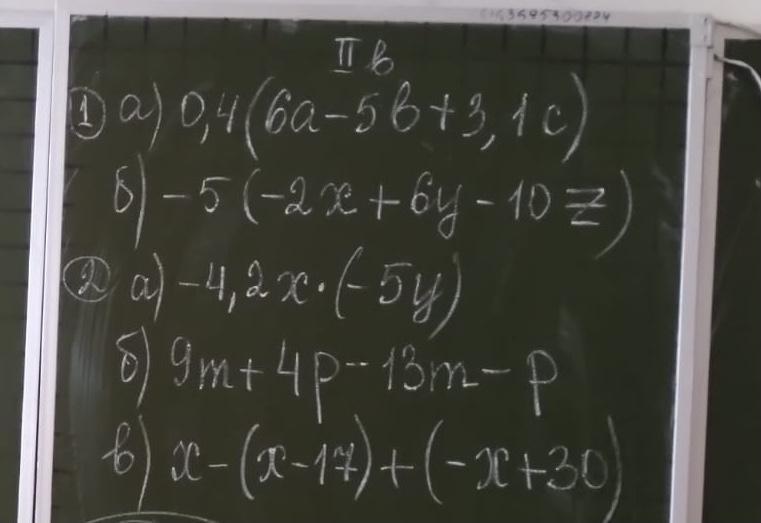 II в
① а) 0,4(6a-5b+3,1c)
б) -5(-2x+6y-10z)
② а) -4,2x·(-5y)
б) 9m+4p-13m-p
в) x-(x-17)+(-x+30)